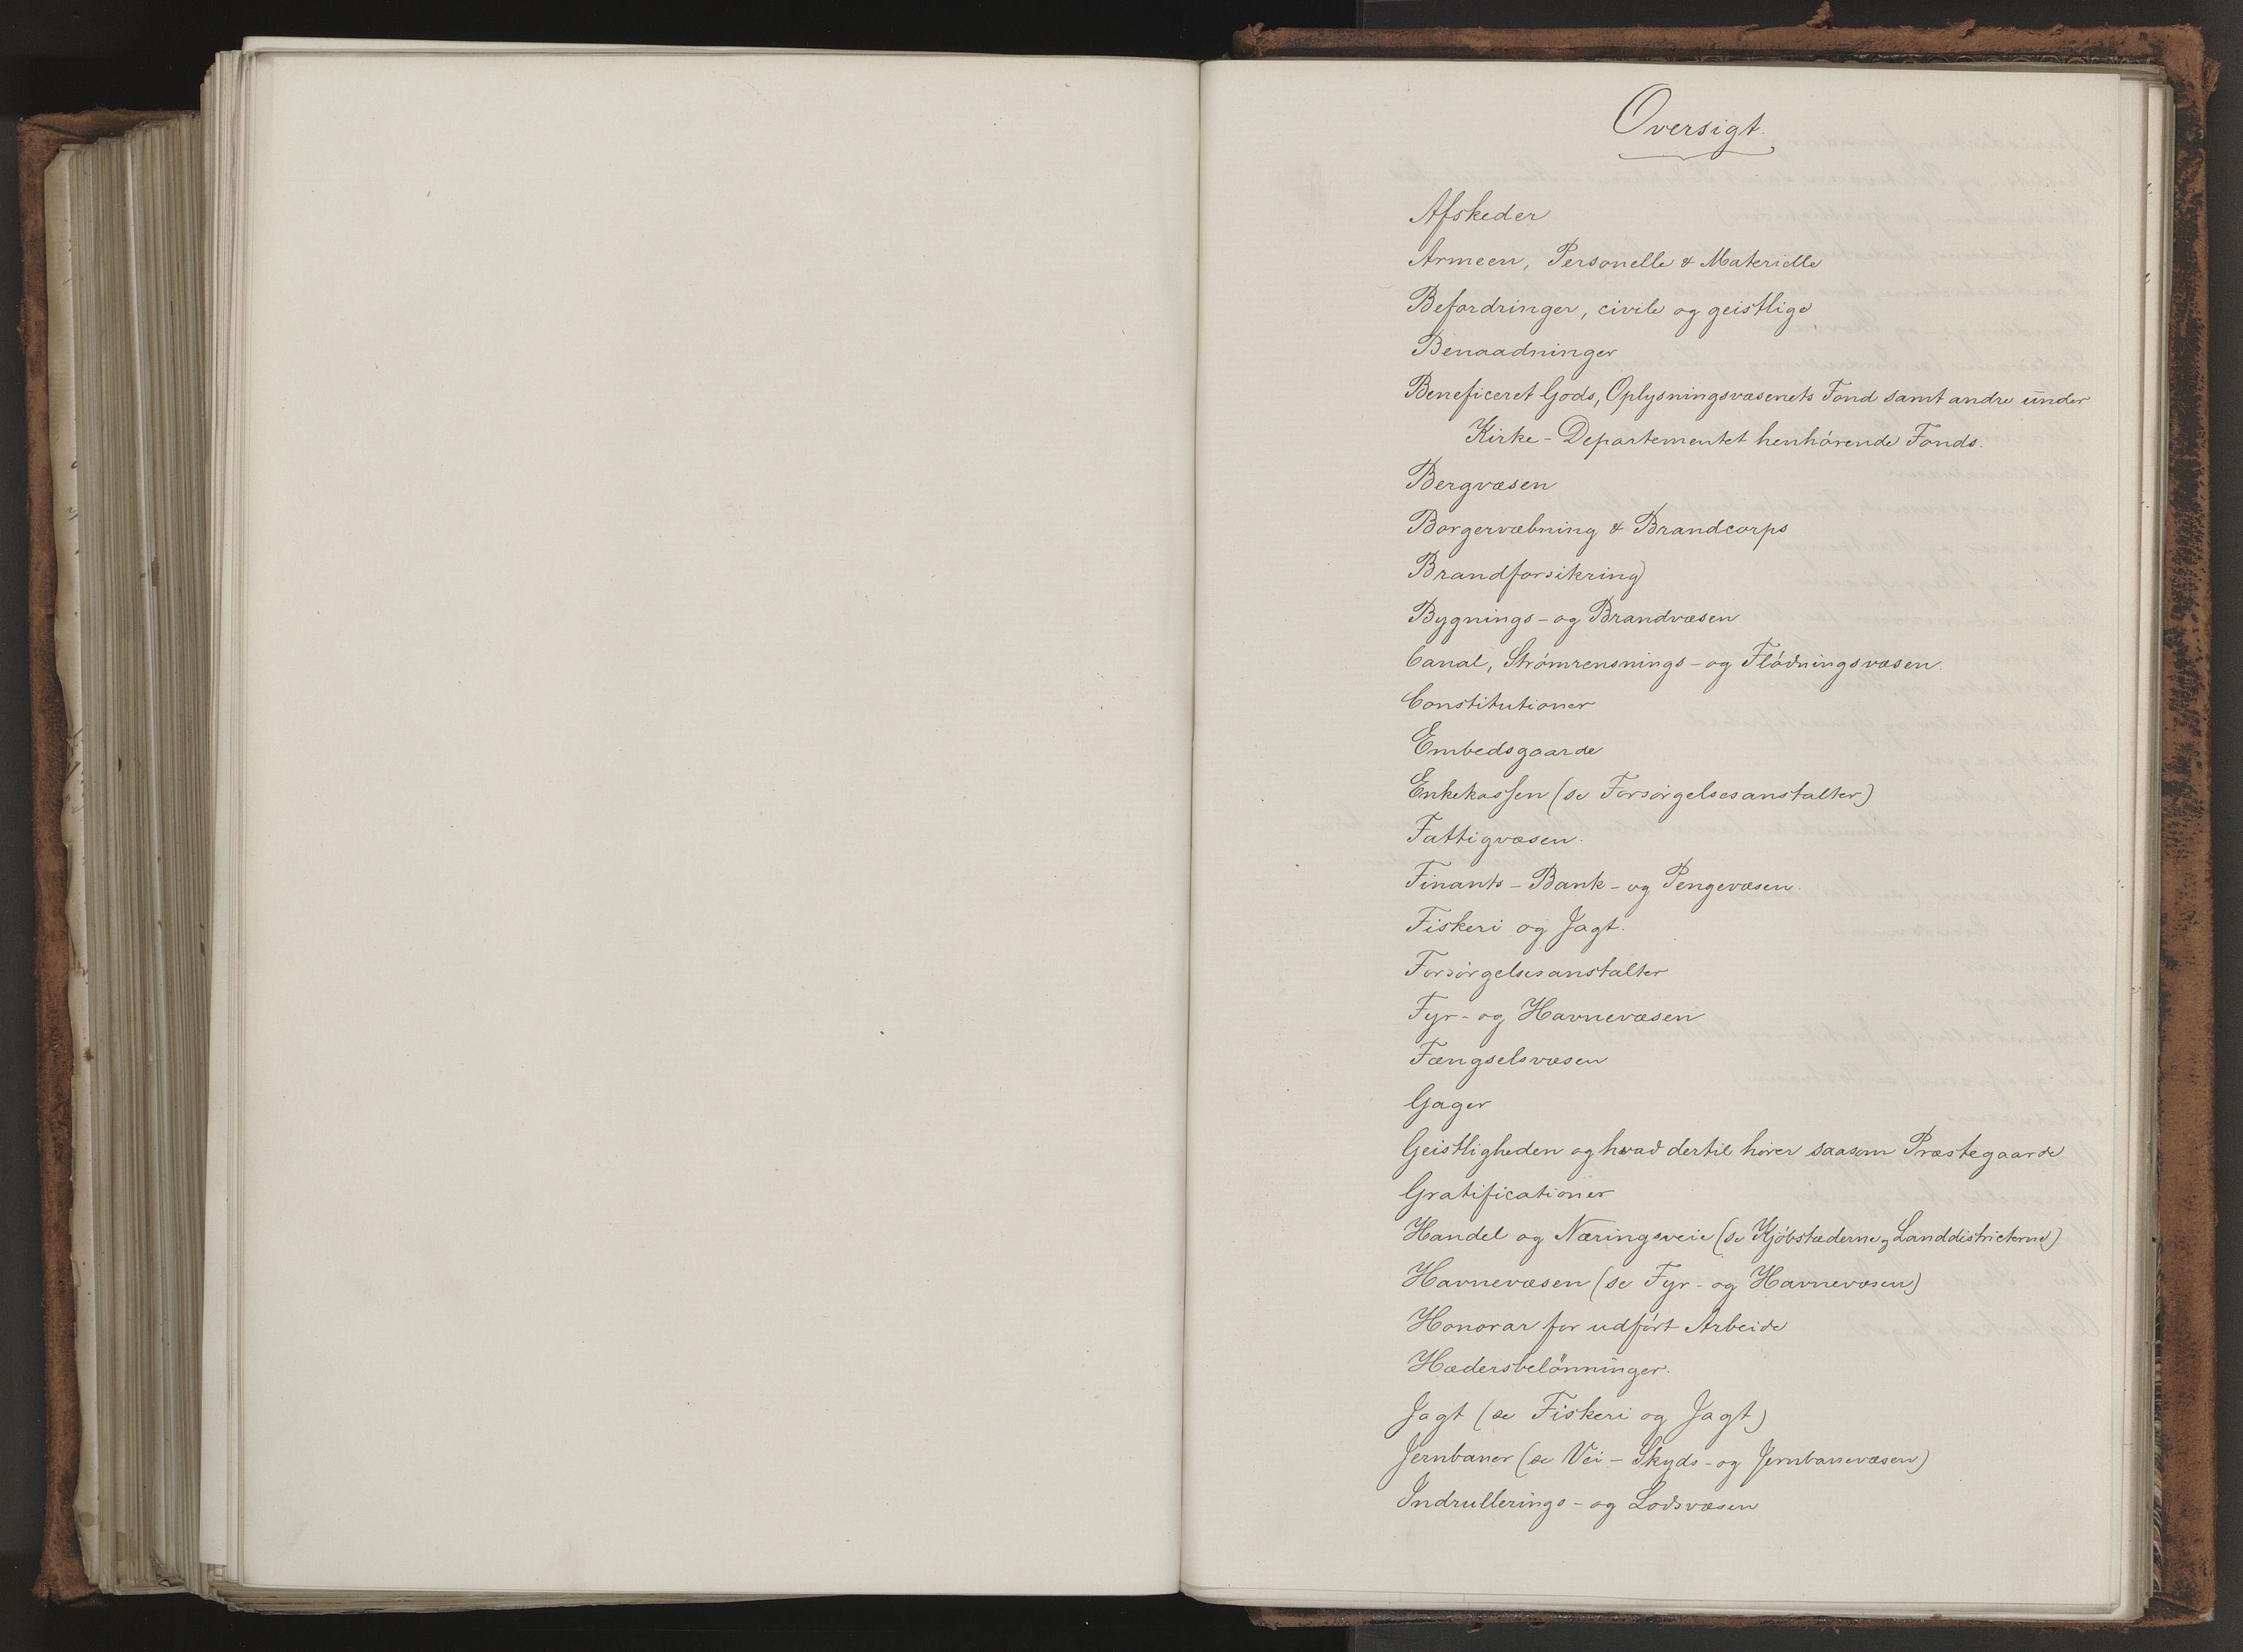 Oversigt.
Afskeder
Armeen, Personelle & Materielle
Befordringer, civile og geistlige
Benaadninger
Beneficeret Gods, Oplysningsvæsenets Fond samt andre under
Kirke-Departementet henhørende Fonds.
Bergvæsen
Borgervæbning & Brandcorps
Brandforsikring
Bygnings- og Brandvæsen
Canal, Strømrensnings- og Flødningsvæsen.
Constitutioner
Embedsgaarde
Enkekassen (se Forsørgelsesanstalter)
Fattigvæsen.
Finants- Bank- og Pengevæsen.
Fiskeri og Jagt.
Forsørgelsesanstalter
Fyr- og Havnevæsen
Fængselsvæsen
Gager
Geistligheden og hvad dertil hører saasom Præstegaarde
Gratificationer
Handel og Næringsveie (se Kjøbstæderne og Landdistricterne)
Havnevæsen (se Fyr- og Havnevæsen)
Honorar for udført Arbeide
Hædersbelønninger.
Jagt (se Fiskeri og Jagt)
Jernbaner (se Vei- Skyds- og Jernbanevæsen)
Indrullerings- og Lodsvæsen